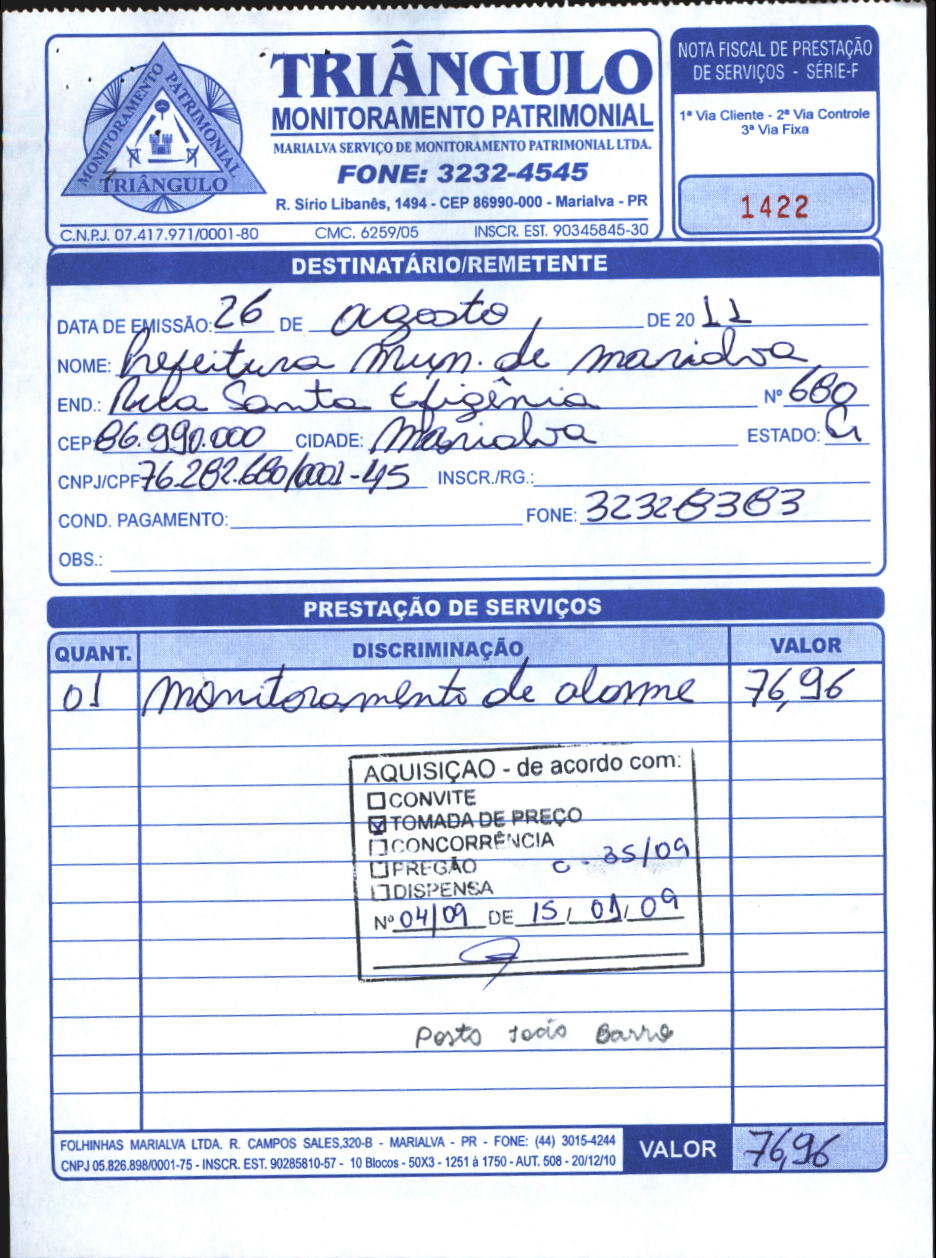 TRIÂNGULO
MONITORAMENTO PATRIMONIAL
MARIALVA SERVIÇO DE MONITORAMENTO PATRIMONIAL LTDA.
FONE: 3232-4545
R. Sírio Libanês, 1494 - CEP 86990-000 - Marialva - PR
MONITORAMENTO PATRIMONIAL
TRIÂNGULO
C.N.P.J. 07.417.971/0001-80 CMC. 6259/05 INSCR. EST. 90345845-30
NOTA FISCAL DE PRESTAÇÃO
DE SERVIÇOS - SÉRIE-F
1ª Via Cliente - 2ª Via Controle
3ª Via Fixa
1422
DESTINATÁRIO/REMETENTE
DATA DE EMISSÃO: 26 DE agosto DE 20 11
NOME: Prefeitura Mun. de Marialva
END.: Rua Santa Efigênia Nº 680
CEP: 86.990.000 CIDADE: Marialva ESTADO:
CNPJ/CPF 76.282.680/0001-45 INSCR./RG.:
COND. PAGAMENTO: FONE: 32328383
OBS.:
PRESTAÇÃO DE SERVIÇOS
QUANT. DISCRIMINAÇÃO VALOR
01 Monitoramento de alarme 76,96
AQUISIÇAO - de acordo com:
CONVITE
TOMADA DE PREÇO
CONCORRÊNCIA
PREGÃO C - 35/09
DISPENSA
Nº 04/09 DE 15 / 01 / 09
Posto João Barro
FOLHINHAS MARIALVA LTDA. R. CAMPOS SALES,320-B - MARIALVA - PR - FONE: (44) 3015-4244
CNPJ 05.826.898/0001-75 - INSCR. EST. 90285810-57 - 10 Blocos - 50X3 - 1251 à 1750 - AUT. 508 - 20/12/10
VALOR 76,96